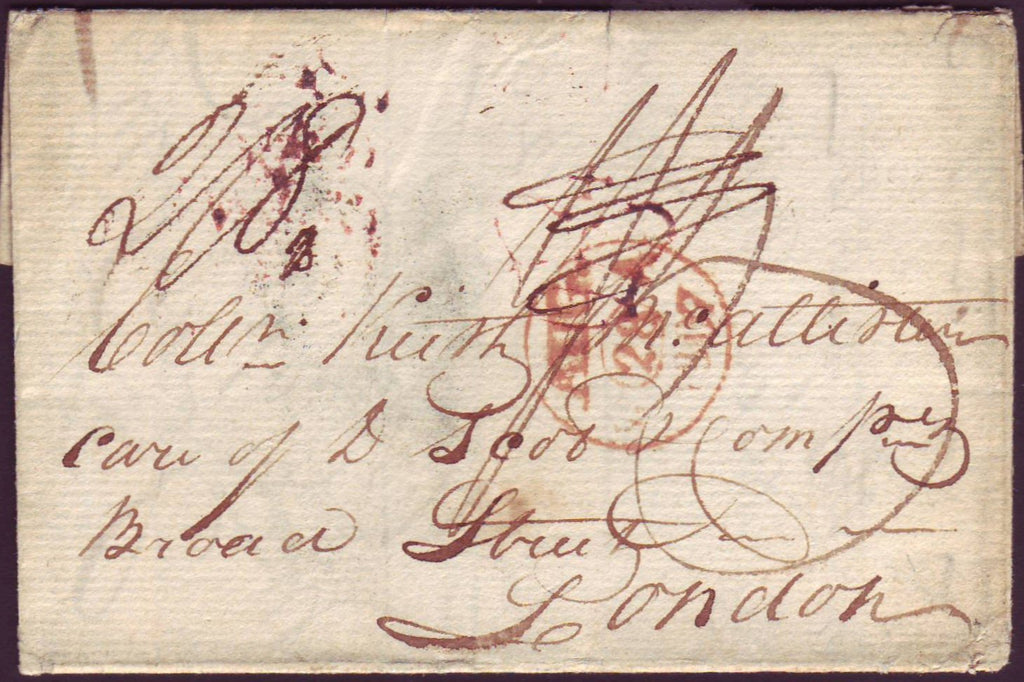 2/8
Coln. Keith McAllister
Care of D Scot & Compy
Broad Street
London